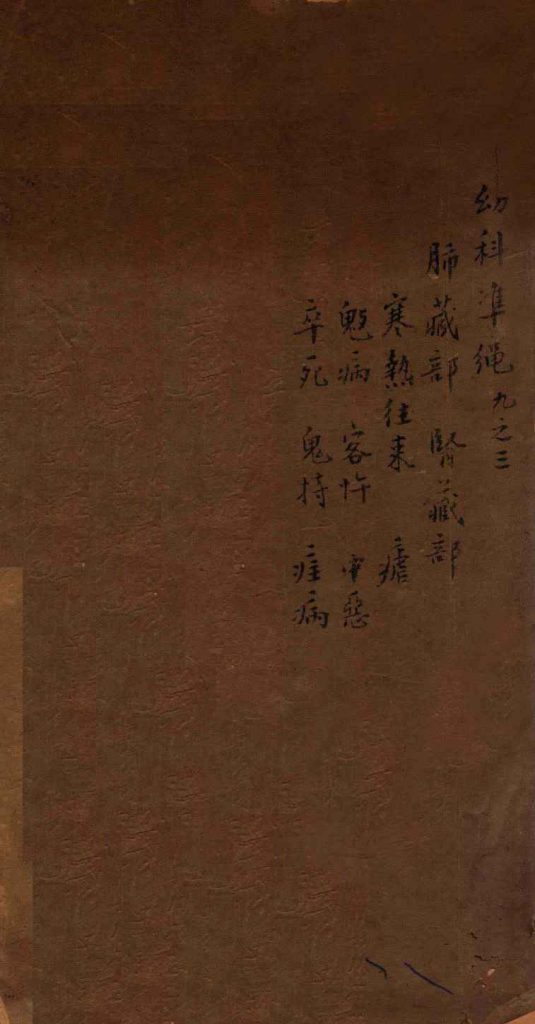 幼科準繩 九之三
肺藏部 腎藏部
寒熱往来 瘧
鬾病 客忤 中惡
卒死 鬼持 疰病